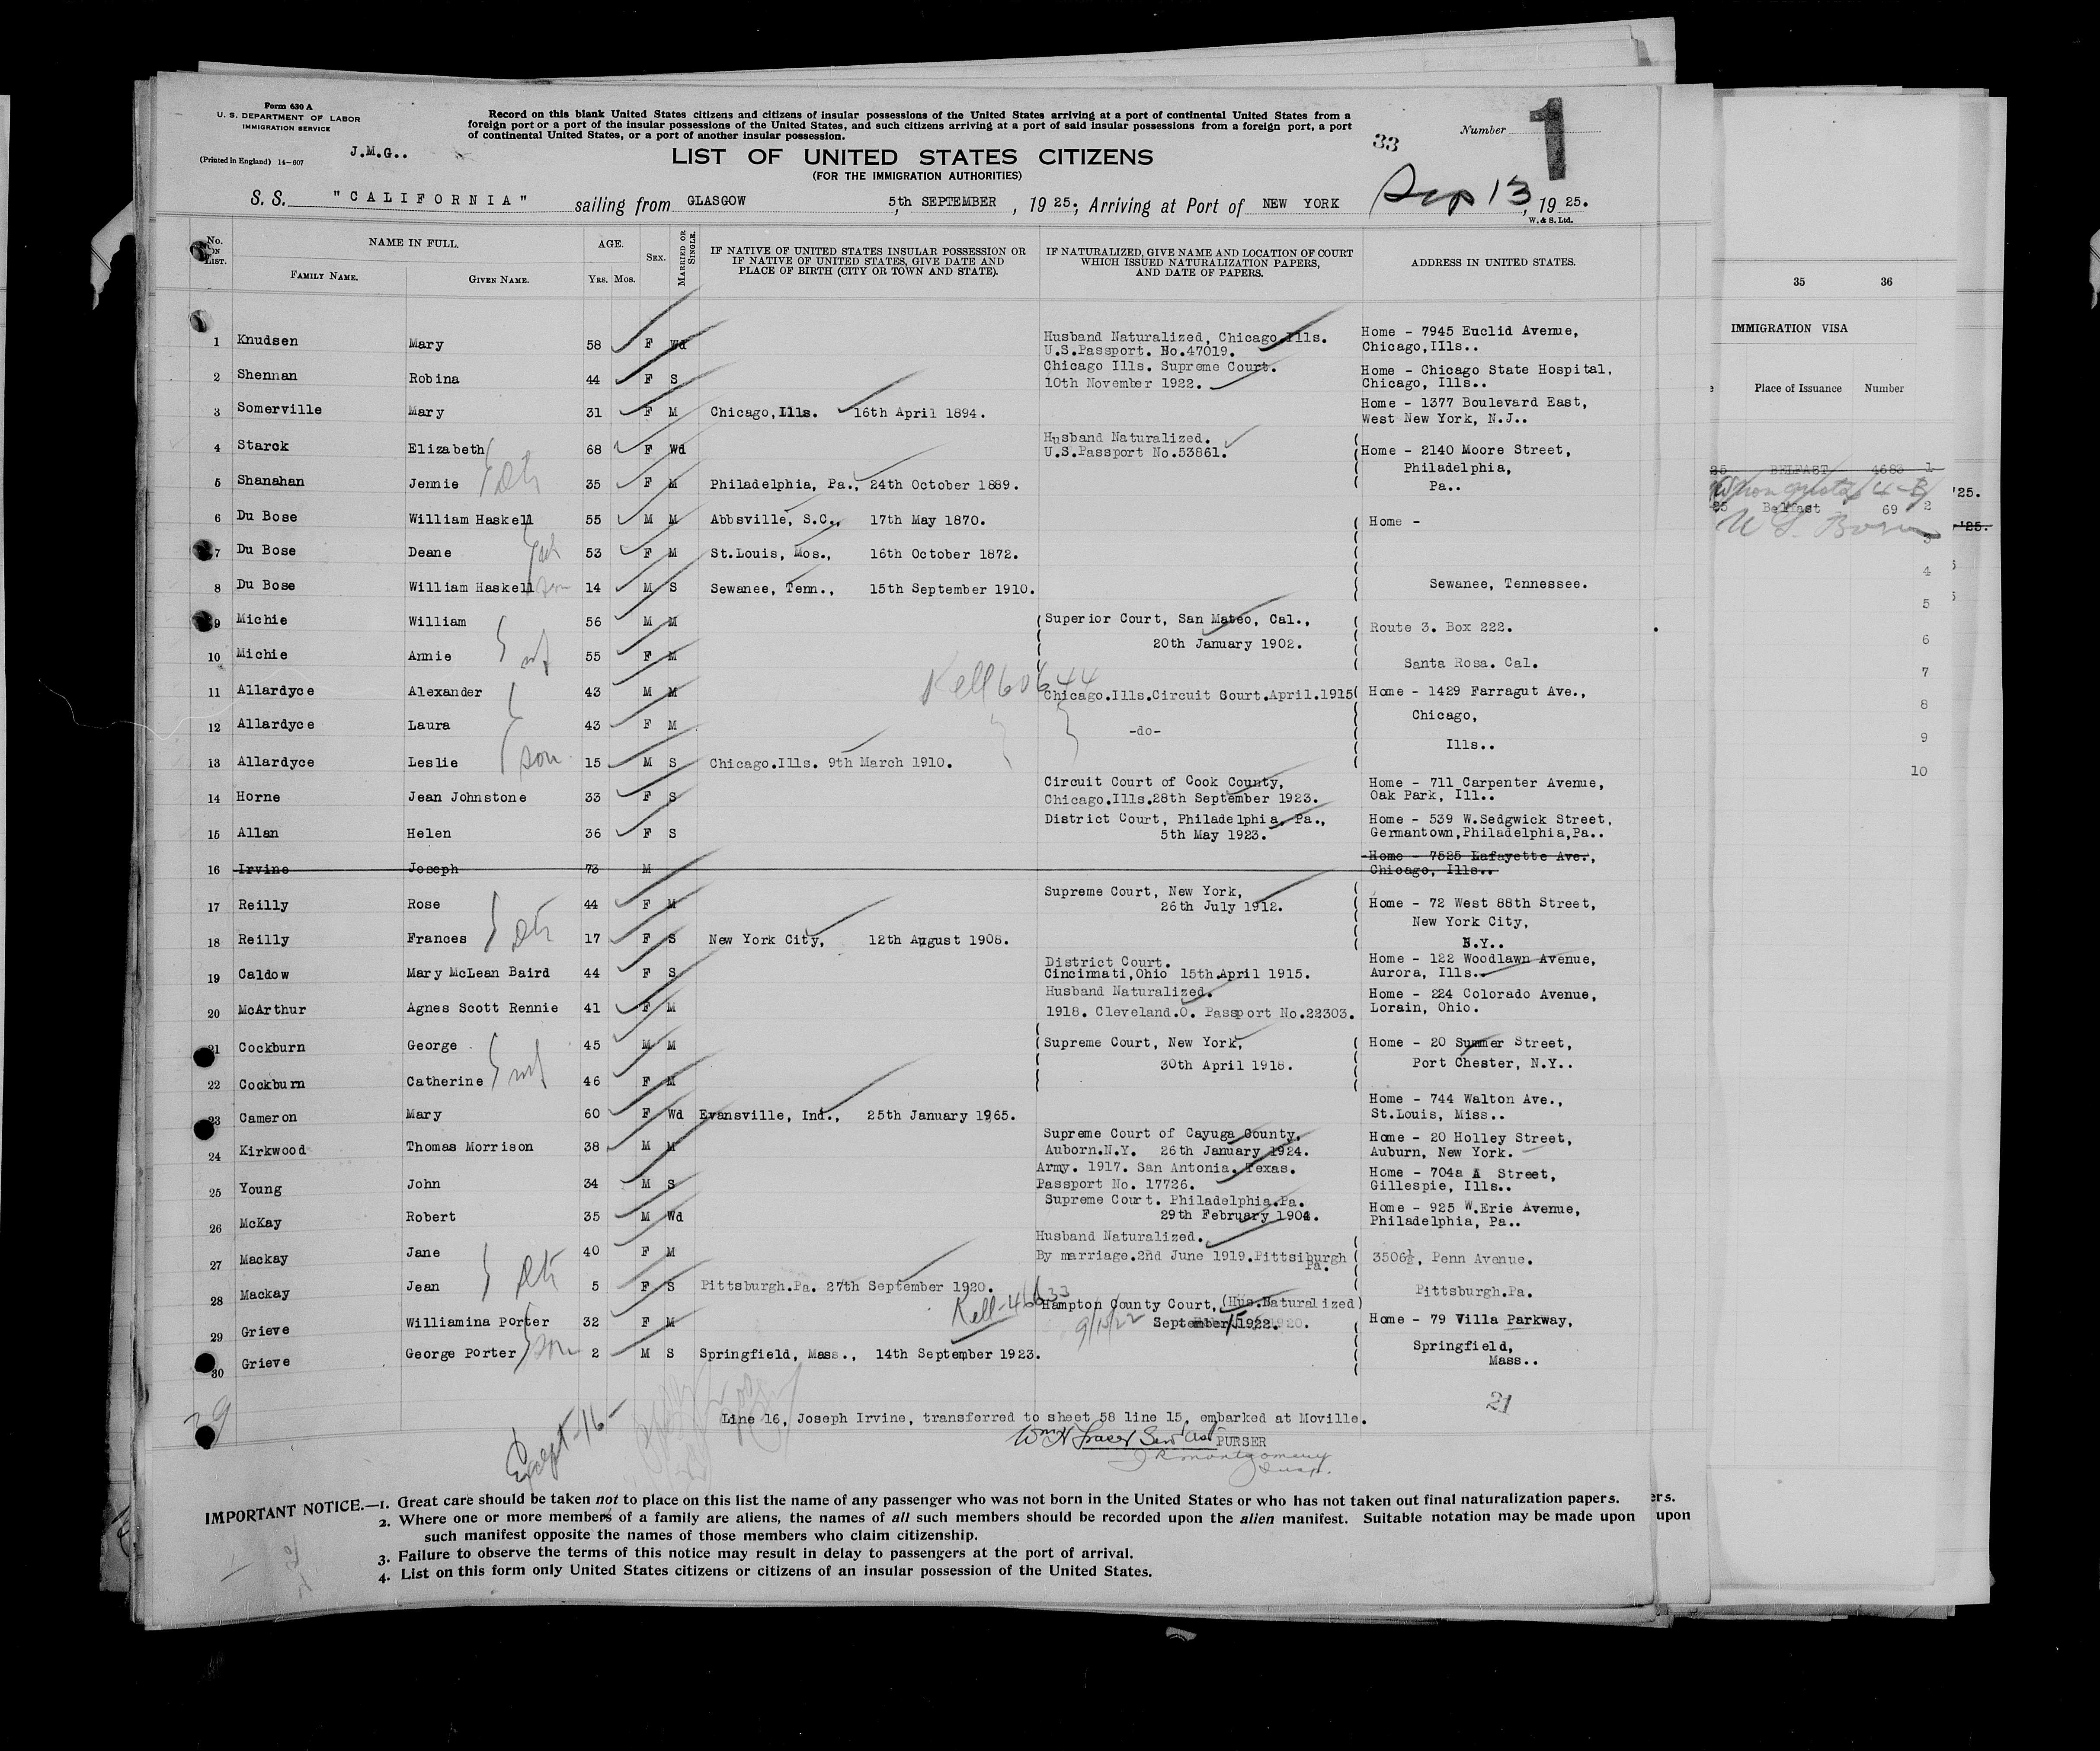 Form 630 A
U. S. DEPARTMENT OF LABOR
IMMIGRATION SERVICE
(Printed in England) 14-607
J.M.G..
Record on this blank United States citizens and citizens of insular possessions of the United States arriving at a port of continental United States from a
foreign port or a port of the insular possessions of the United States, and such citizens arriving at a port of said insular possessions from a foreign port, a port
of continental United States, or a port of another insular possession.
33
Number 1
LIST OF UNITED STATES CITIZENS
(FOR THE IMMIGRATION AUTHORITIES)
S. S. "CALIFORNIA" sailing from GLASGOW 5th SEPTEMBER, 1925; Arriving at Port of NEW YORK Sep 13, 1925.
W. & S. Ltd.
No. ON LIST. NAME IN FULL. FAMILY NAME. GIVEN NAME. AGE. YRS. MOS. SEX. MARRIED OR SINGLE.
IF NATIVE OF UNITED STATES INSULAR POSSESSION OR
IF NATIVE OF UNITED STATES, GIVE DATE AND
PLACE OF BIRTH (CITY OR TOWN AND STATE).
IF NATURALIZED, GIVE NAME AND LOCATION OF COURT
WHICH ISSUED NATURALIZATION PAPERS,
AND DATE OF PAPERS.
ADDRESS IN UNITED STATES.
1 Knudsen Mary 58 F Wd Husband Naturalized, Chicago Ills. Home - 7945 Euclid Avenue,
U.S.Passport. No.47019. Chicago,Ills..
2 Shennan Robina 44 F S Chicago Ills. Supreme Court. Home - Chicago State Hospital,
10th November 1922. Chicago, Ills..
3 Somerville Mary 31 F M Chicago,Ills. 16th April 1894. Home - 1377 Boulevard East,
West New York, N.J..
4 Starck Elizabeth 68 F Wd Husband Naturalized. Home - 2140 Moore Street,
U.S.Passport No.53861. Philadelphia,
5 Shanahan Jennie dtr 35 F M Philadelphia, Pa., 24th October 1889. Pa..
6 Du Bose William Haskell 55 M M Abbsville, S.C., 17th May 1870. Home -
7 Du Bose Deane 53 F M St.Louis, Mos., 16th October 1872.
8 Du Bose William Haskell son 14 M S Sewanee, Tenn., 15th September 1910. Sewanee, Tennessee.
9 Michie William 56 M M Superior Court, San Mateo, Cal., Route 3. Box 222.
20th January 1902.
10 Michie Annie wf 55 F M Santa Rosa. Cal.
Kell 60644
11 Allardyce Alexander 43 M M Chicago.Ills.Circuit Court.April.1915 Home - 1429 Farragut Ave.,
12 Allardyce Laura 43 F M -do- Chicago,
Ills..
13 Allardyce Leslie son 15 M S Chicago.Ills. 9th March 1910.
14 Horne Jean Johnstone 33 F S Circuit Court of Cook County, Home - 711 Carpenter Avenue,
Chicago.Ills.28th September 1923. Oak Park, Ill..
15 Allan Helen 36 F S District Court, Philadelphia, Pa., Home - 539 W.Sedgwick Street,
5th May 1923. Germantown,Philadelphia,Pa..
16 Irvine Joseph 73 M Home - 7525 Lafayette Ave.,
Chicago, Ills..
17 Reilly Rose 44 F M Supreme Court, New York, Home - 72 West 88th Street,
26th July 1912. New York City,
18 Reilly Frances dtr 17 F S New York City, 12th August 1908. N.Y..
19 Caldow Mary McLean Baird 44 F S District Court. Home - 122 Woodlawn Avenue,
Cincinnati,Ohio 15th April 1915. Aurora, Ills..
20 McArthur Agnes Scott Rennie 41 F M Husband Naturalized. Home - 224 Colorado Avenue,
1918. Cleveland.O. Passport No.22303. Lorain, Ohio.
21 Cockburn George 45 M M Supreme Court, New York, Home - 20 Summer Street,
30th April 1918. Port Chester, N.Y..
22 Cockburn Catherine wf 46 F M
23 Cameron Mary 60 F Wd Evansville, Ind., 25th January 1965. Home - 744 Walton Ave.,
St.Louis, Miss..
24 Kirkwood Thomas Morrison 38 M M Supreme Court of Cayuga County, Home - 20 Holley Street,
Auborn.N.Y. 26th January 1924. Auburn, New York.
25 Young John 34 M S Army. 1917. San Antonia. Texas. Home - 704a A Street,
Passport No. 17726. Gillespie, Ills..
26 McKay Robert 35 M Wd Supreme Court. Philadelphia.Pa. Home - 925 W.Erie Avenue,
29th February 1904. Philadelphia, Pa..
27 Mackay Jane 40 F M Husband Naturalized.
By marriage.2nd June 1919.Pittsiburgh Pa. 3506½, Penn Avenue.
28 Mackay Jean dtr 5 F S Pittsburgh.Pa. 27th September 1920. Pittsburgh.Pa.
Kell-46633
29 Grieve Williamina Porter 32 F M Hampton County Court, (Hus.Naturalized) Home - 79 Villa Parkway,
9/15/22 September 15 1922.
30 Grieve George Porter son 2 M S Springfield, Mass., 14th September 1923. Springfield,
Mass..
29
Except-16-
21
Line 16, Joseph Irvine, transferred to sheet 58 line 15, embarked at Moville.
Wm H Fraser Senr Asst PURSER
J R Montgomery
Insp.
IMPORTANT NOTICE.—1. Great care should be taken not to place on this list the name of any passenger who was not born in the United States or who has not taken out final naturalization papers.
2. Where one or more members of a family are aliens, the names of all such members should be recorded upon the alien manifest. Suitable notation may be made upon
such manifest opposite the names of those members who claim citizenship.
3. Failure to observe the terms of this notice may result in delay to passengers at the port of arrival.
4. List on this form only United States citizens or citizens of an insular possession of the United States.
ers.
upon
35 36
IMMIGRATION VISA
Place of Issuance Number
25. BELFAST 4683 1
Non quota 4-B
'25.
25 Belfast 69 2
'25.
3
4
5
6
7
8
9
10